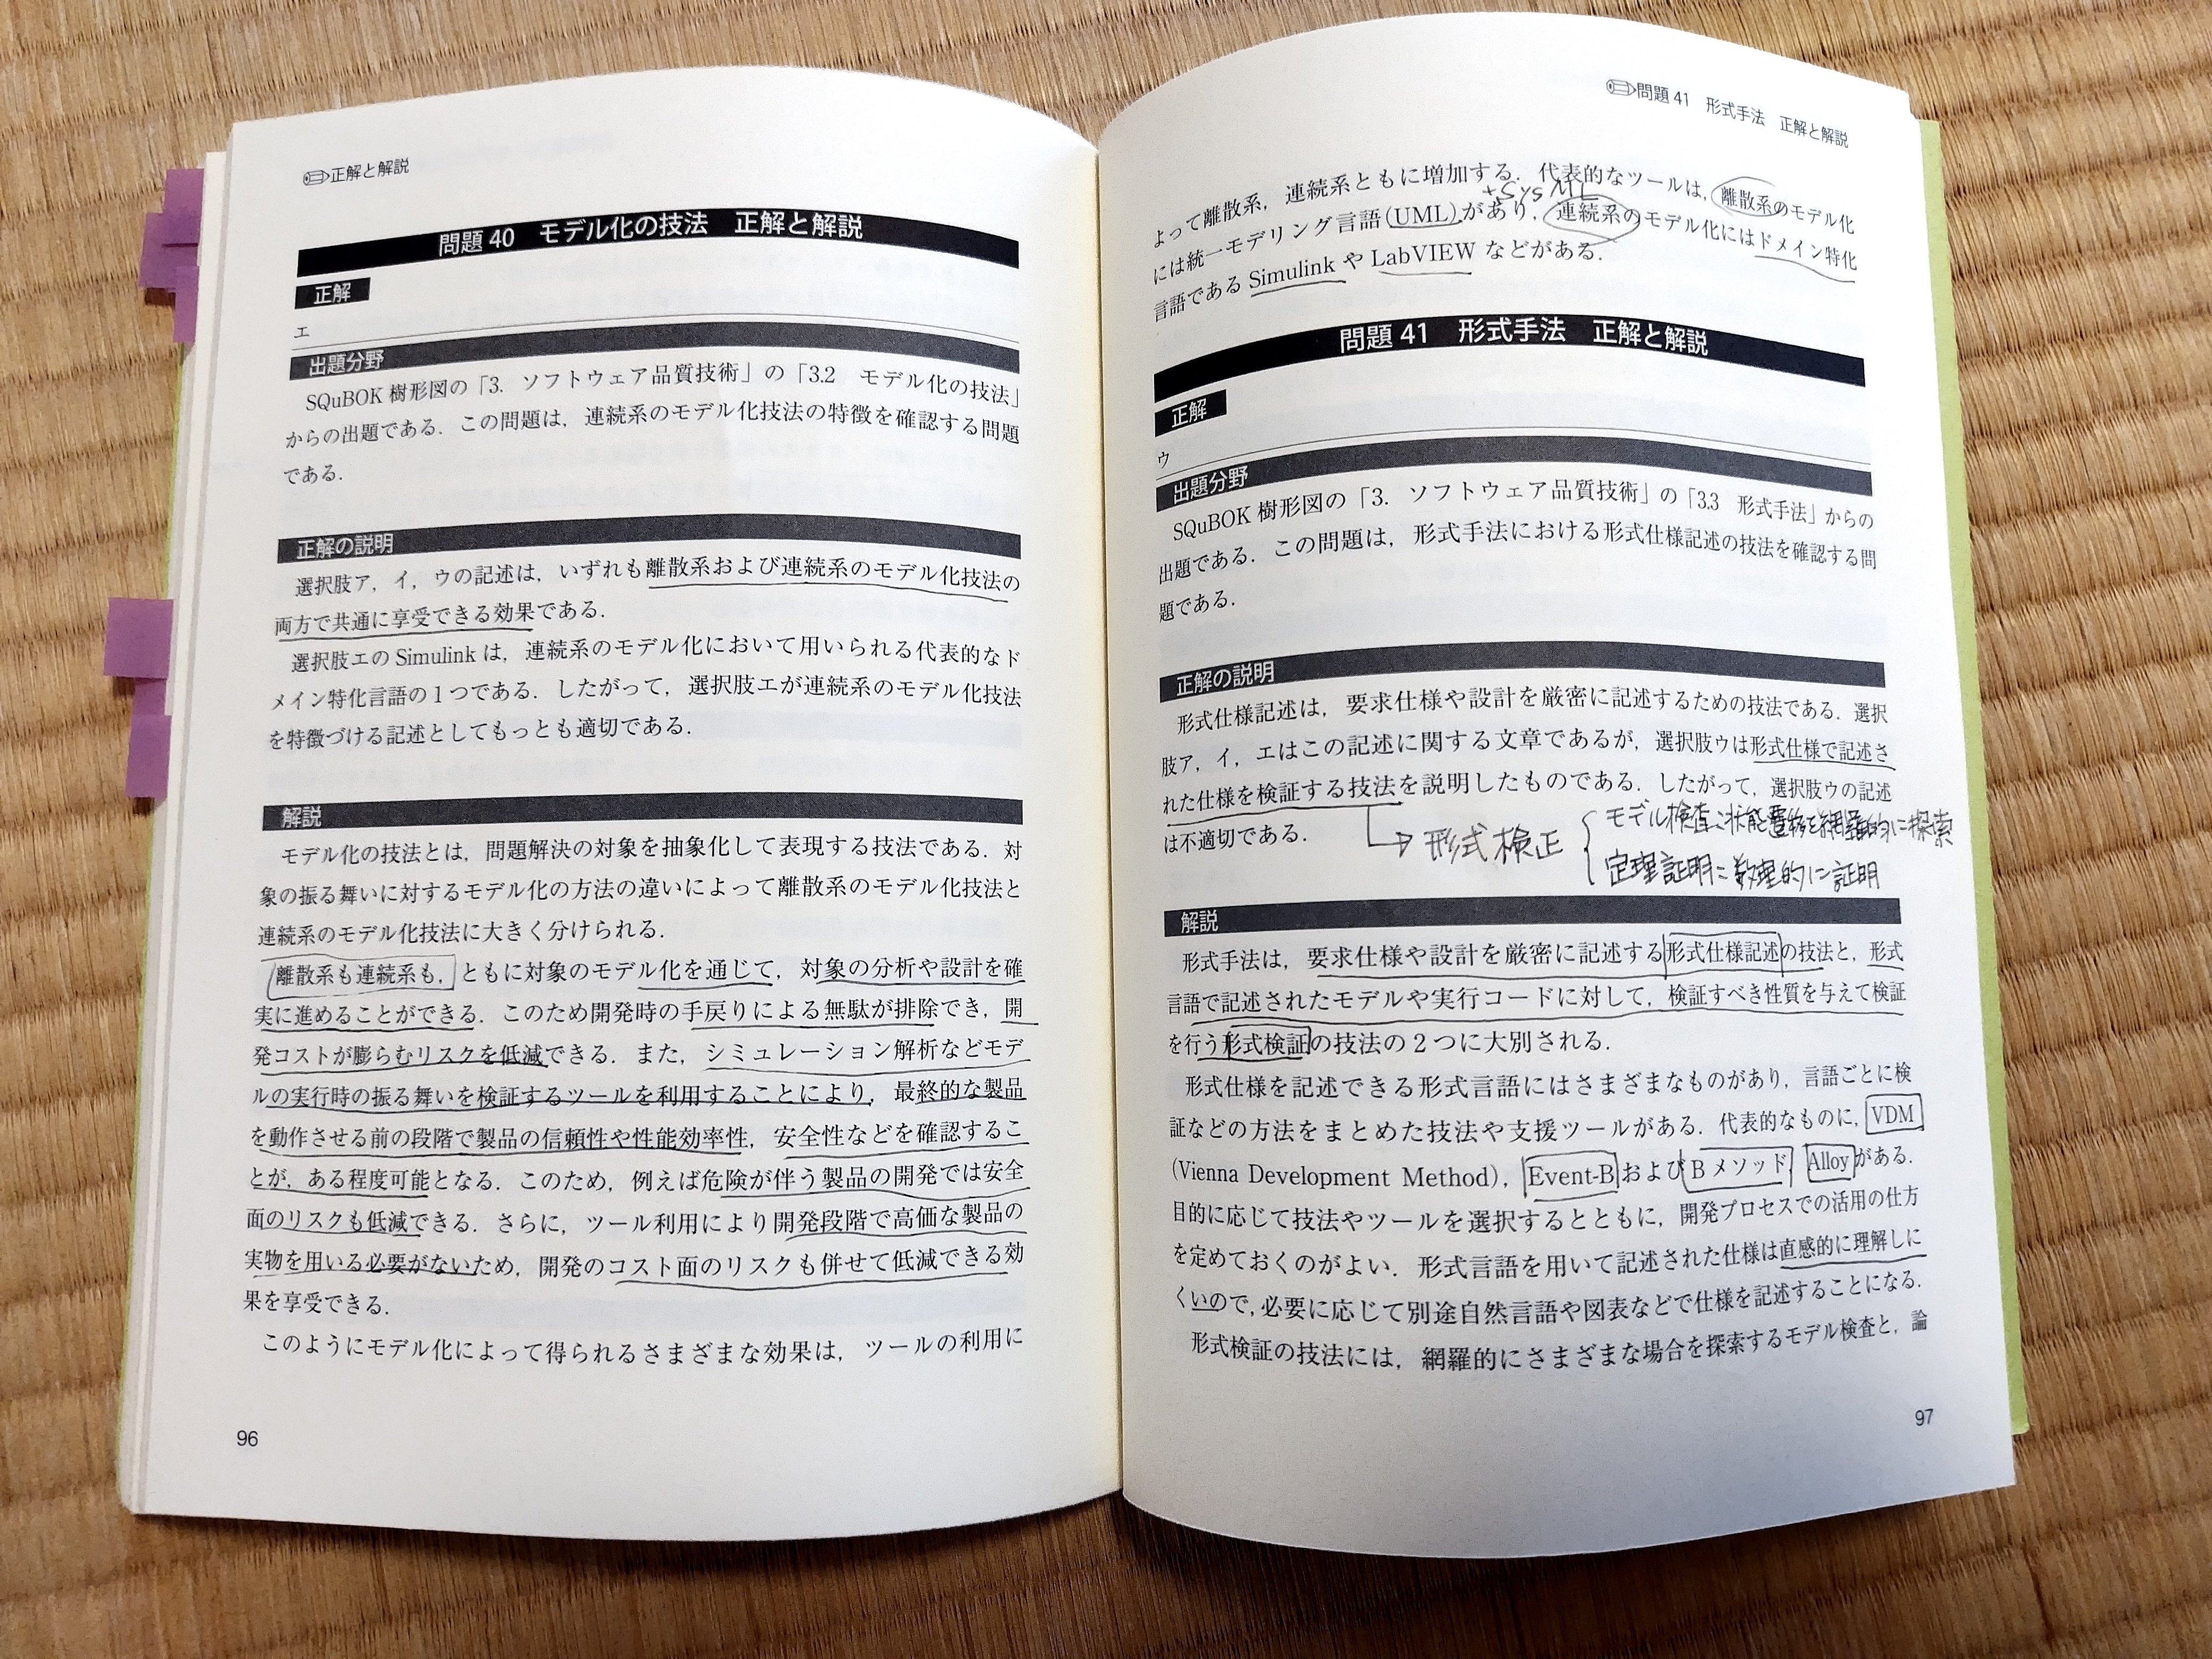 正解と解説
問題 40　モデル化の技法　正解と解説
正解
エ
出題分野
SQuBOK 樹形図の「3.　ソフトウェア品質技術」の「3.2　モデル化の技法」
からの出題である．この問題は，連続系のモデル化技法の特徴を確認する問題
である．
正解の説明
選択肢ア，イ，ウの記述は，いずれも離散系および連続系のモデル化技法の
両方で共通に享受できる効果である．
選択肢エの Simulink は，連続系のモデル化において用いられる代表的なド
メイン特化言語の 1 つである．したがって，選択肢エが連続系のモデル化技法
を特徴づける記述としてもっとも適切である．
解説
モデル化の技法とは，問題解決の対象を抽象化して表現する技法である．対
象の振る舞いに対するモデル化の方法の違いによって離散系のモデル化技法と
連続系のモデル化技法に大きく分けられる．
離散系も連続系も，ともに対象のモデル化を通じて，対象の分析や設計を確
実に進めることができる．このため開発時の手戻りによる無駄が排除でき，開
発コストが膨らむリスクを低減できる．また，シミュレーション解析などモデ
ルの実行時の振る舞いを検証するツールを利用することにより，最終的な製品
を動作させる前の段階で製品の信頼性や性能効率性，安全性などを確認するこ
とが，ある程度可能となる．このため，例えば危険が伴う製品の開発では安全
面のリスクも低減できる．さらに，ツール利用により開発段階で高価な製品の
実物を用いる必要がないため，開発のコスト面のリスクも併せて低減できる効
果を享受できる．
このようにモデル化によって得られるさまざまな効果は，ツールの利用に
96
問題 41　形式手法　正解と解説
よって離散系，連続系ともに増加する．代表的なツールは，離散系のモデル化
+SysML
には統一モデリング言語(UML)があり，連続系のモデル化にはドメイン特化
言語である Simulink や LabVIEW などがある．
問題 41　形式手法　正解と解説
正解
ウ
出題分野
SQuBOK 樹形図の「3.　ソフトウェア品質技術」の「3.3　形式手法」からの
出題である．この問題は，形式手法における形式仕様記述の技法を確認する問
題である．
正解の説明
形式仕様記述は，要求仕様や設計を厳密に記述するための技法である．選択
肢ア，イ，エはこの記述に関する文章であるが，選択肢ウは形式仕様で記述さ
れた仕様を検証する技法を説明したものである．したがって，選択肢ウの記述
は不適切である．
→形式検証
モデル検査:状態遷移を網羅的に探索
定理証明:数理的に証明
解説
形式手法は，要求仕様や設計を厳密に記述する形式仕様記述の技法と，形式
言語で記述されたモデルや実行コードに対して，検証すべき性質を与えて検証
を行う形式検証の技法の 2 つに大別される．
形式仕様を記述できる形式言語にはさまざまなものがあり，言語ごとに検
証などの方法をまとめた技法や支援ツールがある．代表的なものに，VDM
(Vienna Development Method)，Event-B および B メソッド，Alloy がある．
目的に応じて技法やツールを選択するとともに，開発プロセスでの活用の仕方
を定めておくのがよい．形式言語を用いて記述された仕様は直感的に理解しに
くいので，必要に応じて別途自然言語や図表などで仕様を記述することになる．
形式検証の技法には，網羅的にさまざまな場合を探索するモデル検査と，論
97